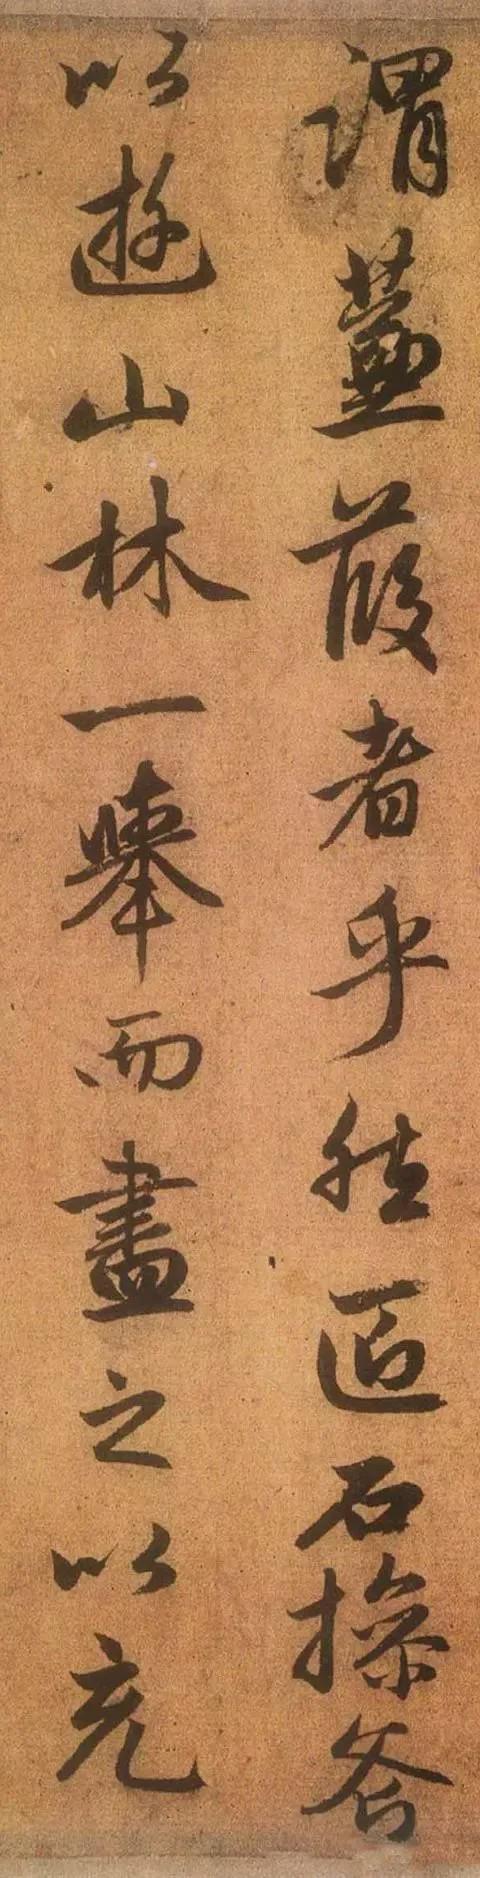 謂蒹葭者乎然匠石操斧
以遊山林一舉而盡之以充